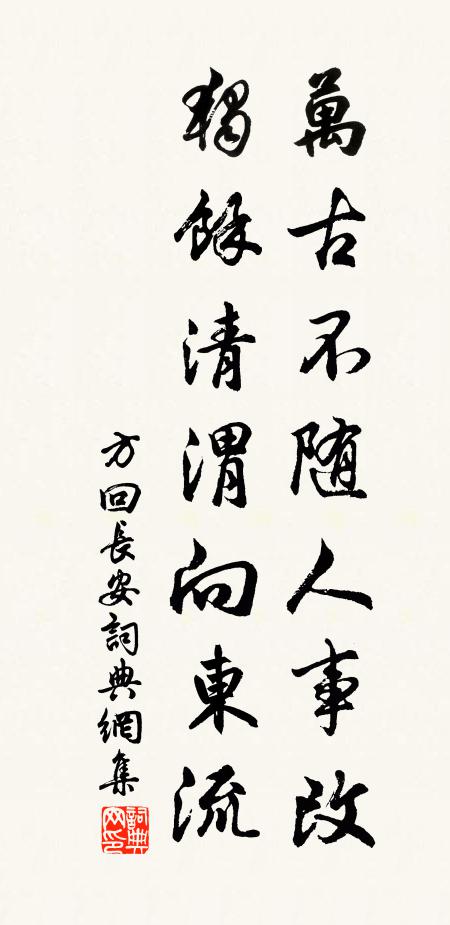 萬古不随人事改
獨餘清渭向東流
方回長安詞典網集
詞典網印